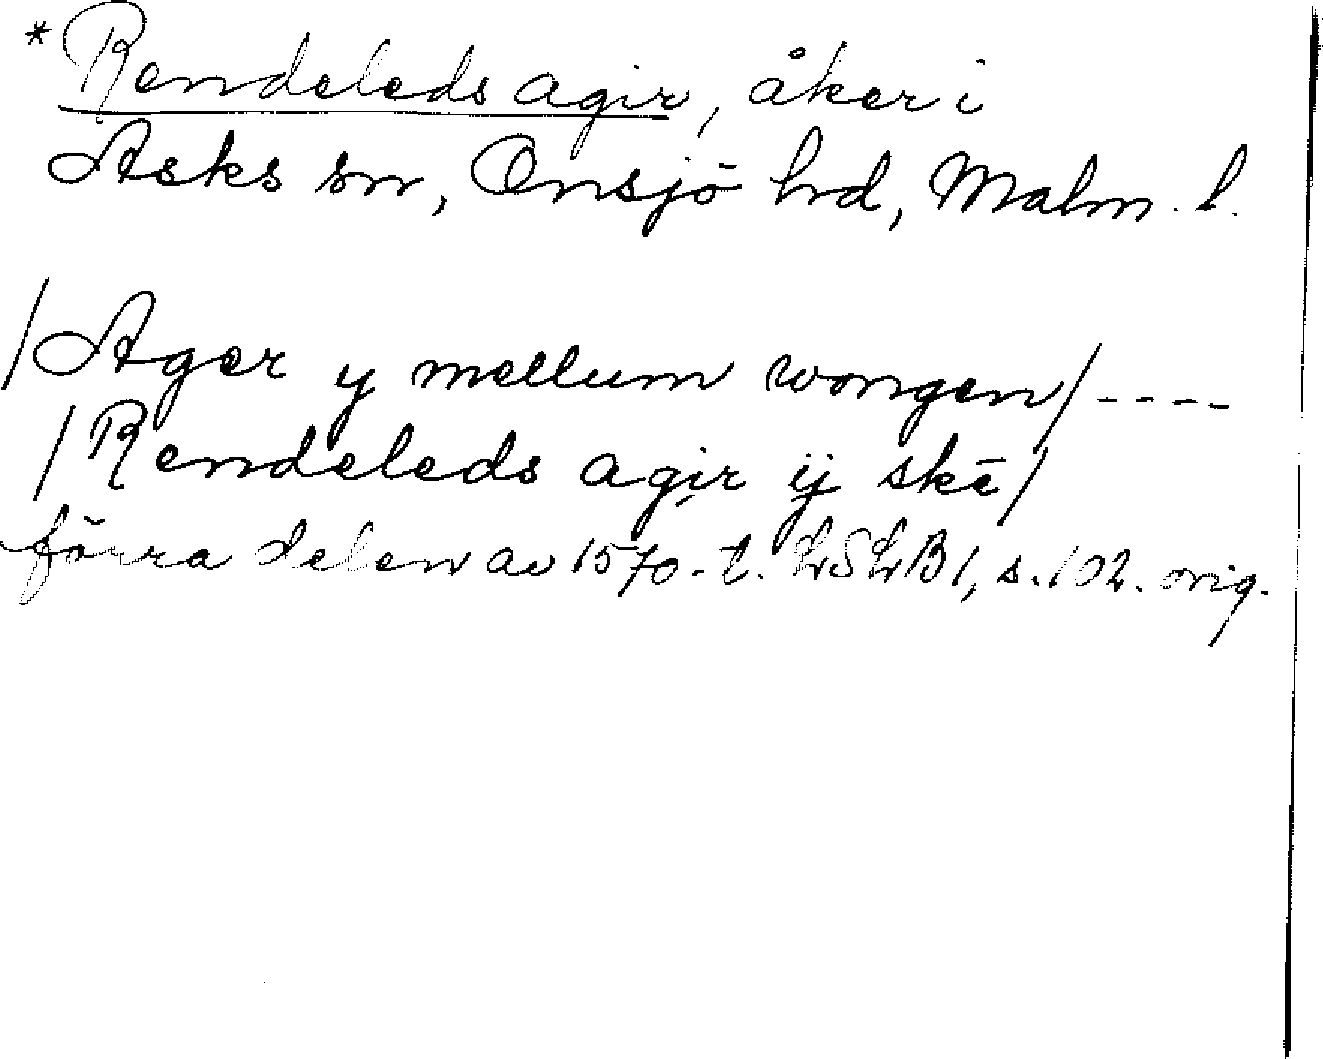 *Rendeleds agir, åker i
Asks sn, Onsjö hd, Malm. l.
/Ager y mellum wongen/----
/Rendeleds agir ij skē/
förra delen av 1570-t. LSLB 1, s. 102. orig.